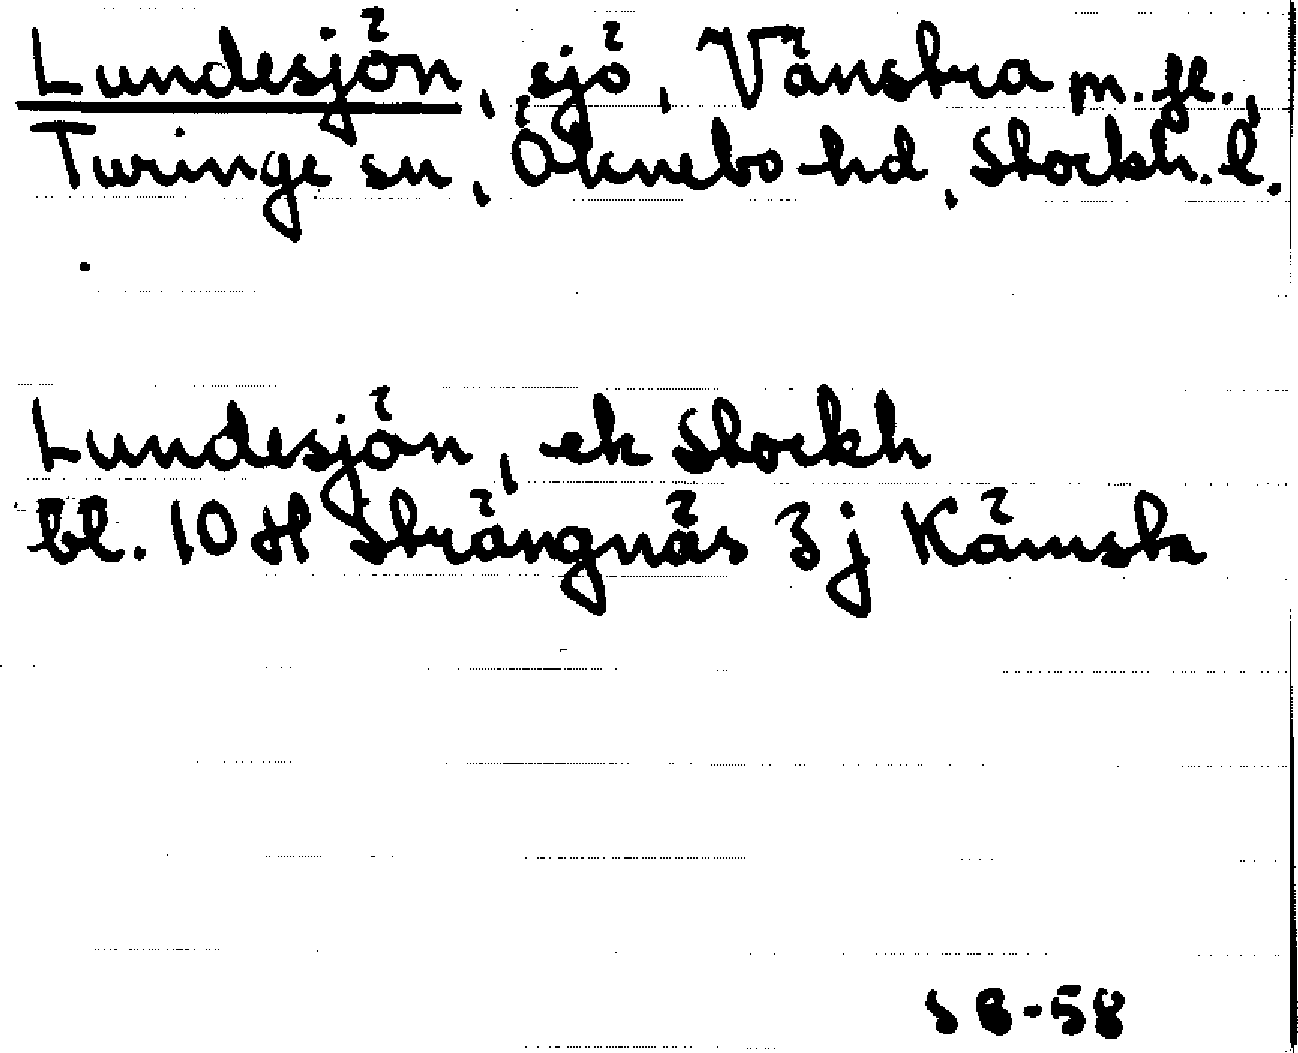 Lundesjön, sjö, Vänstra m.fl.,
Turinge sn, Öknebo hd, Stockh.l.
Lundesjön, ek Stockh
bl. 10 H Strängnäs 3 j Kämsta
SB-58